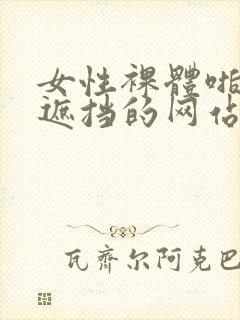 女性裸體啪
遮挡的网佔
瓦齊尔阿克巴